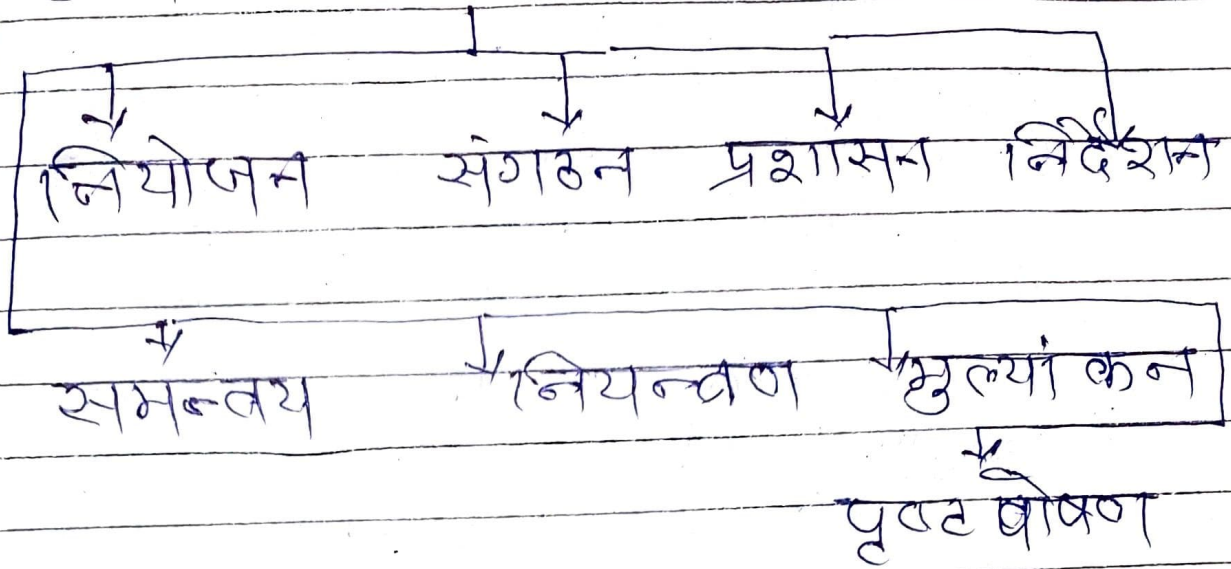 नियोजन संगठन प्रशासन निर्देशन
समन्वय नियन्त्रण मुल्यांकन
पृष्ट पोषण